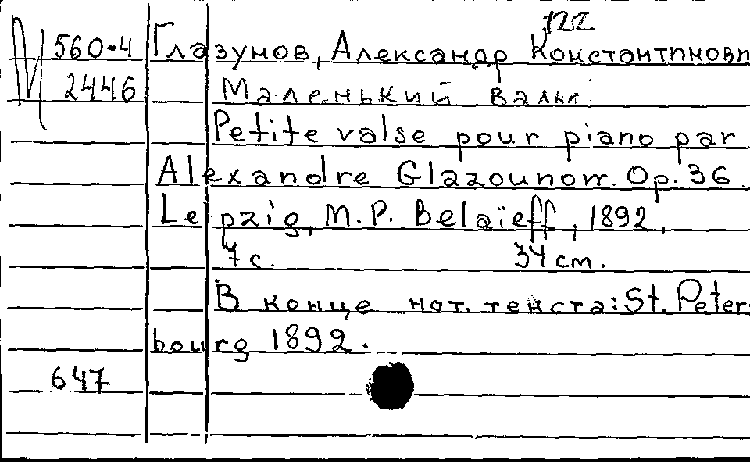 122
560-4 Глазунов, Александр Константинови
2446 Маленький вальс.
Petite valse pour piano par
Alexandre Glazounow. Op. 36.
Leipzig, M.P. Belaïeff, 1892.
7 с. 34 см.
В конце нот. текста: St. Peters
bourg 1892.
647